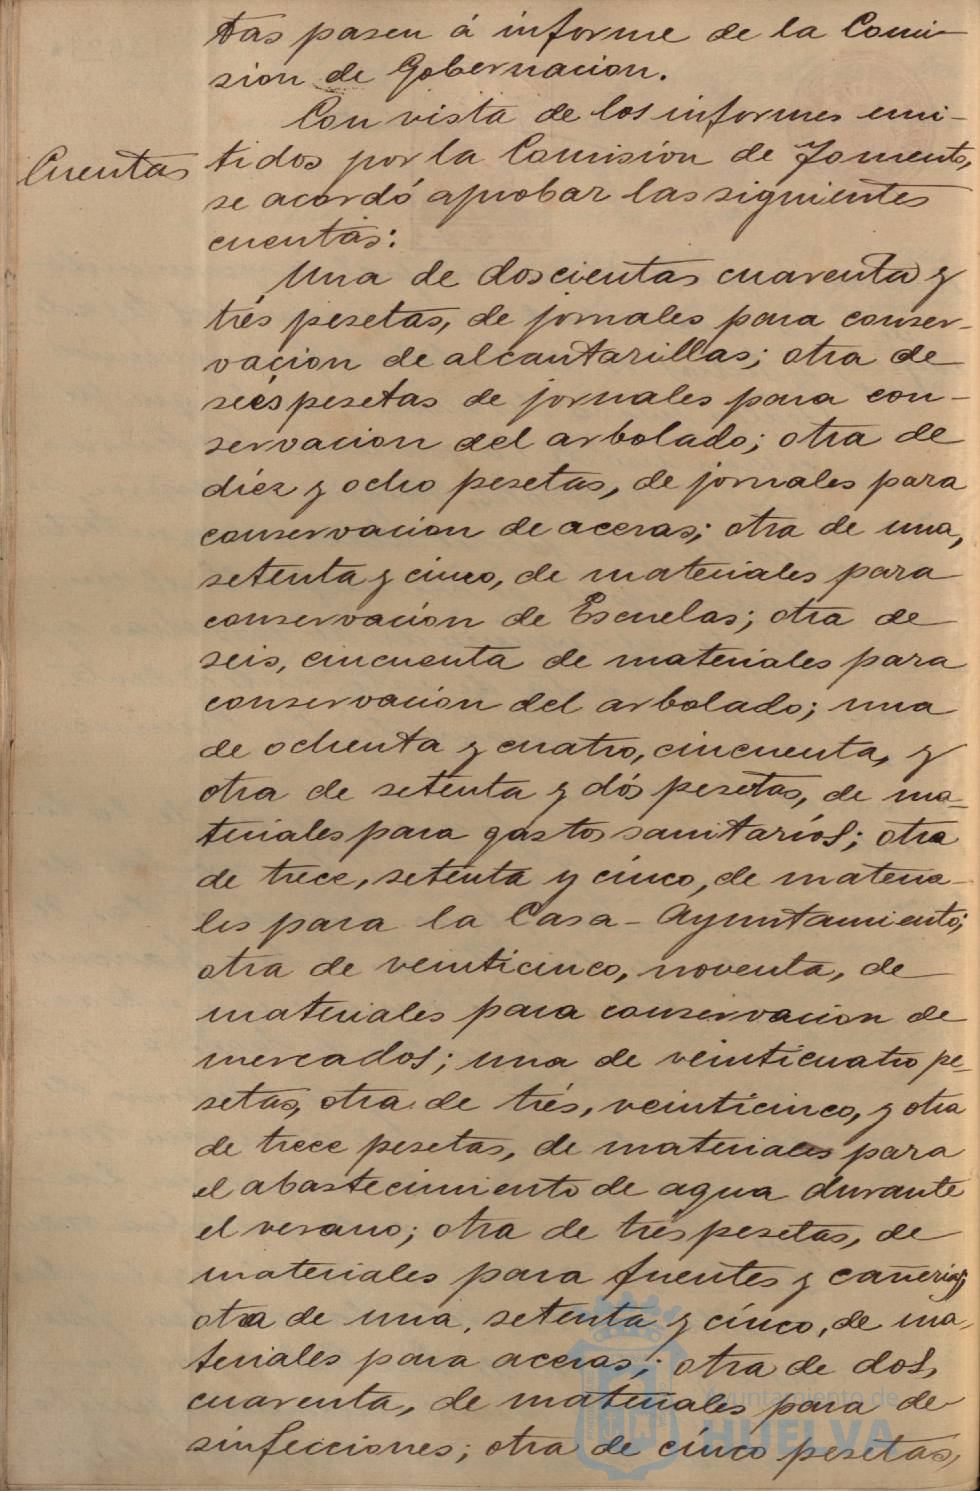 tas pasen á informe de la Comi-
sion de Gobernacion.
Con vista de los informes emi-
Cuentas
tidos por la Comisión de Fomento,
se acordó aprobar las siguientes
cuentas:
Una de doscientas cuarenta y
trés pesetas, de jornales para conser-
vacion de alcantarillas; otra de
seis pesetas de jornales para con-
servacion del arbolado; otra de
diéz y ocho pesetas, de jornales para
conservacion de aceras; otra de una,
setenta y cinco, de materiales para
conservación de Escuelas; otra de
seis, cincuenta de materiales para
conservacion del arbolado; una
de ochenta y cuatro, cincuenta, y
otra de setenta y dós pesetas, de ma-
teriales para gastos sanitarios; otra
de trece, setenta y cinco, de materia-
les para la Casa-Ayuntamiento;
otra de veinticinco, noventa, de
materiales para conservacion de
mercados; una de veinticuatro pe-
setas, otra de trés, veinticinco, y otra
de trece pesetas, de materiales para
el abastecimiento de agua durante
el verano; otra de trés pesetas, de
materiales para fuentes y cañerias;
otra de una, setenta y cinco, de ma-
teriales para aceras; otra de dos,
cuarenta, de materiales para de-
sinfecciones; otra de cinco pesetas,
Ayuntamiento de
HUELVA